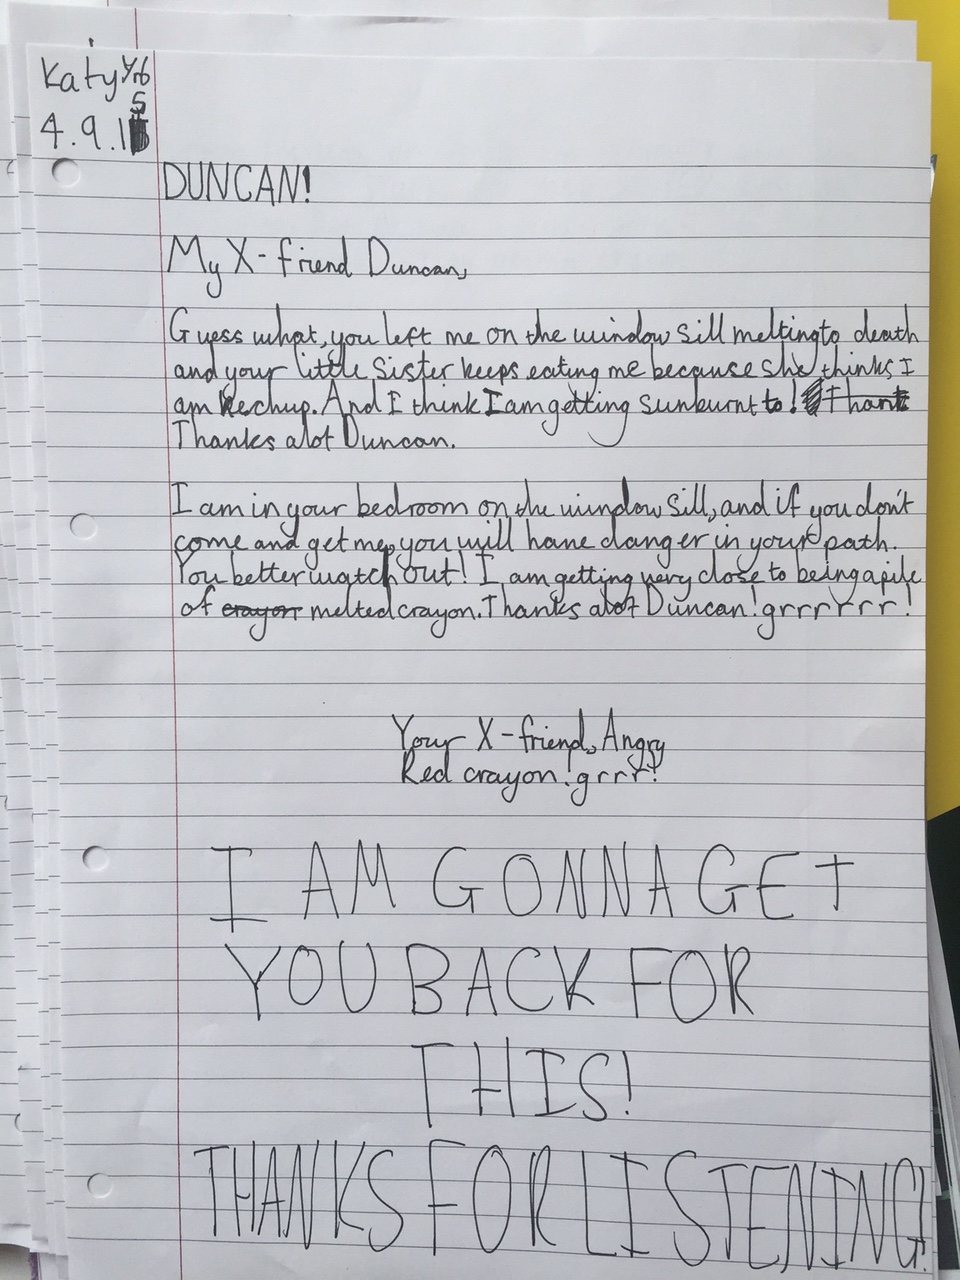 Katy Yr6
5
4.9.1
DUNCAN!
My X-friend Duncan,
Guess what, you left me on the window sill melting to death
and your little sister keeps eating me because she thinks I
am kechup. And I think I am getting sunburnt to! Thank
Thanks alot Duncan.
I am in your bedroom on the window sill, and if you don't
come and get me, you will have danger in your path.
You better watch out! I am getting very close to being a pile
of crayon melted crayon. Thanks alot Duncan! grrrrrr!
Your X-friend, Angry
Red crayon! grrr!
I AM GONNA GET
YOU BACK FOR
THIS!
THANKS FOR LISTENING!